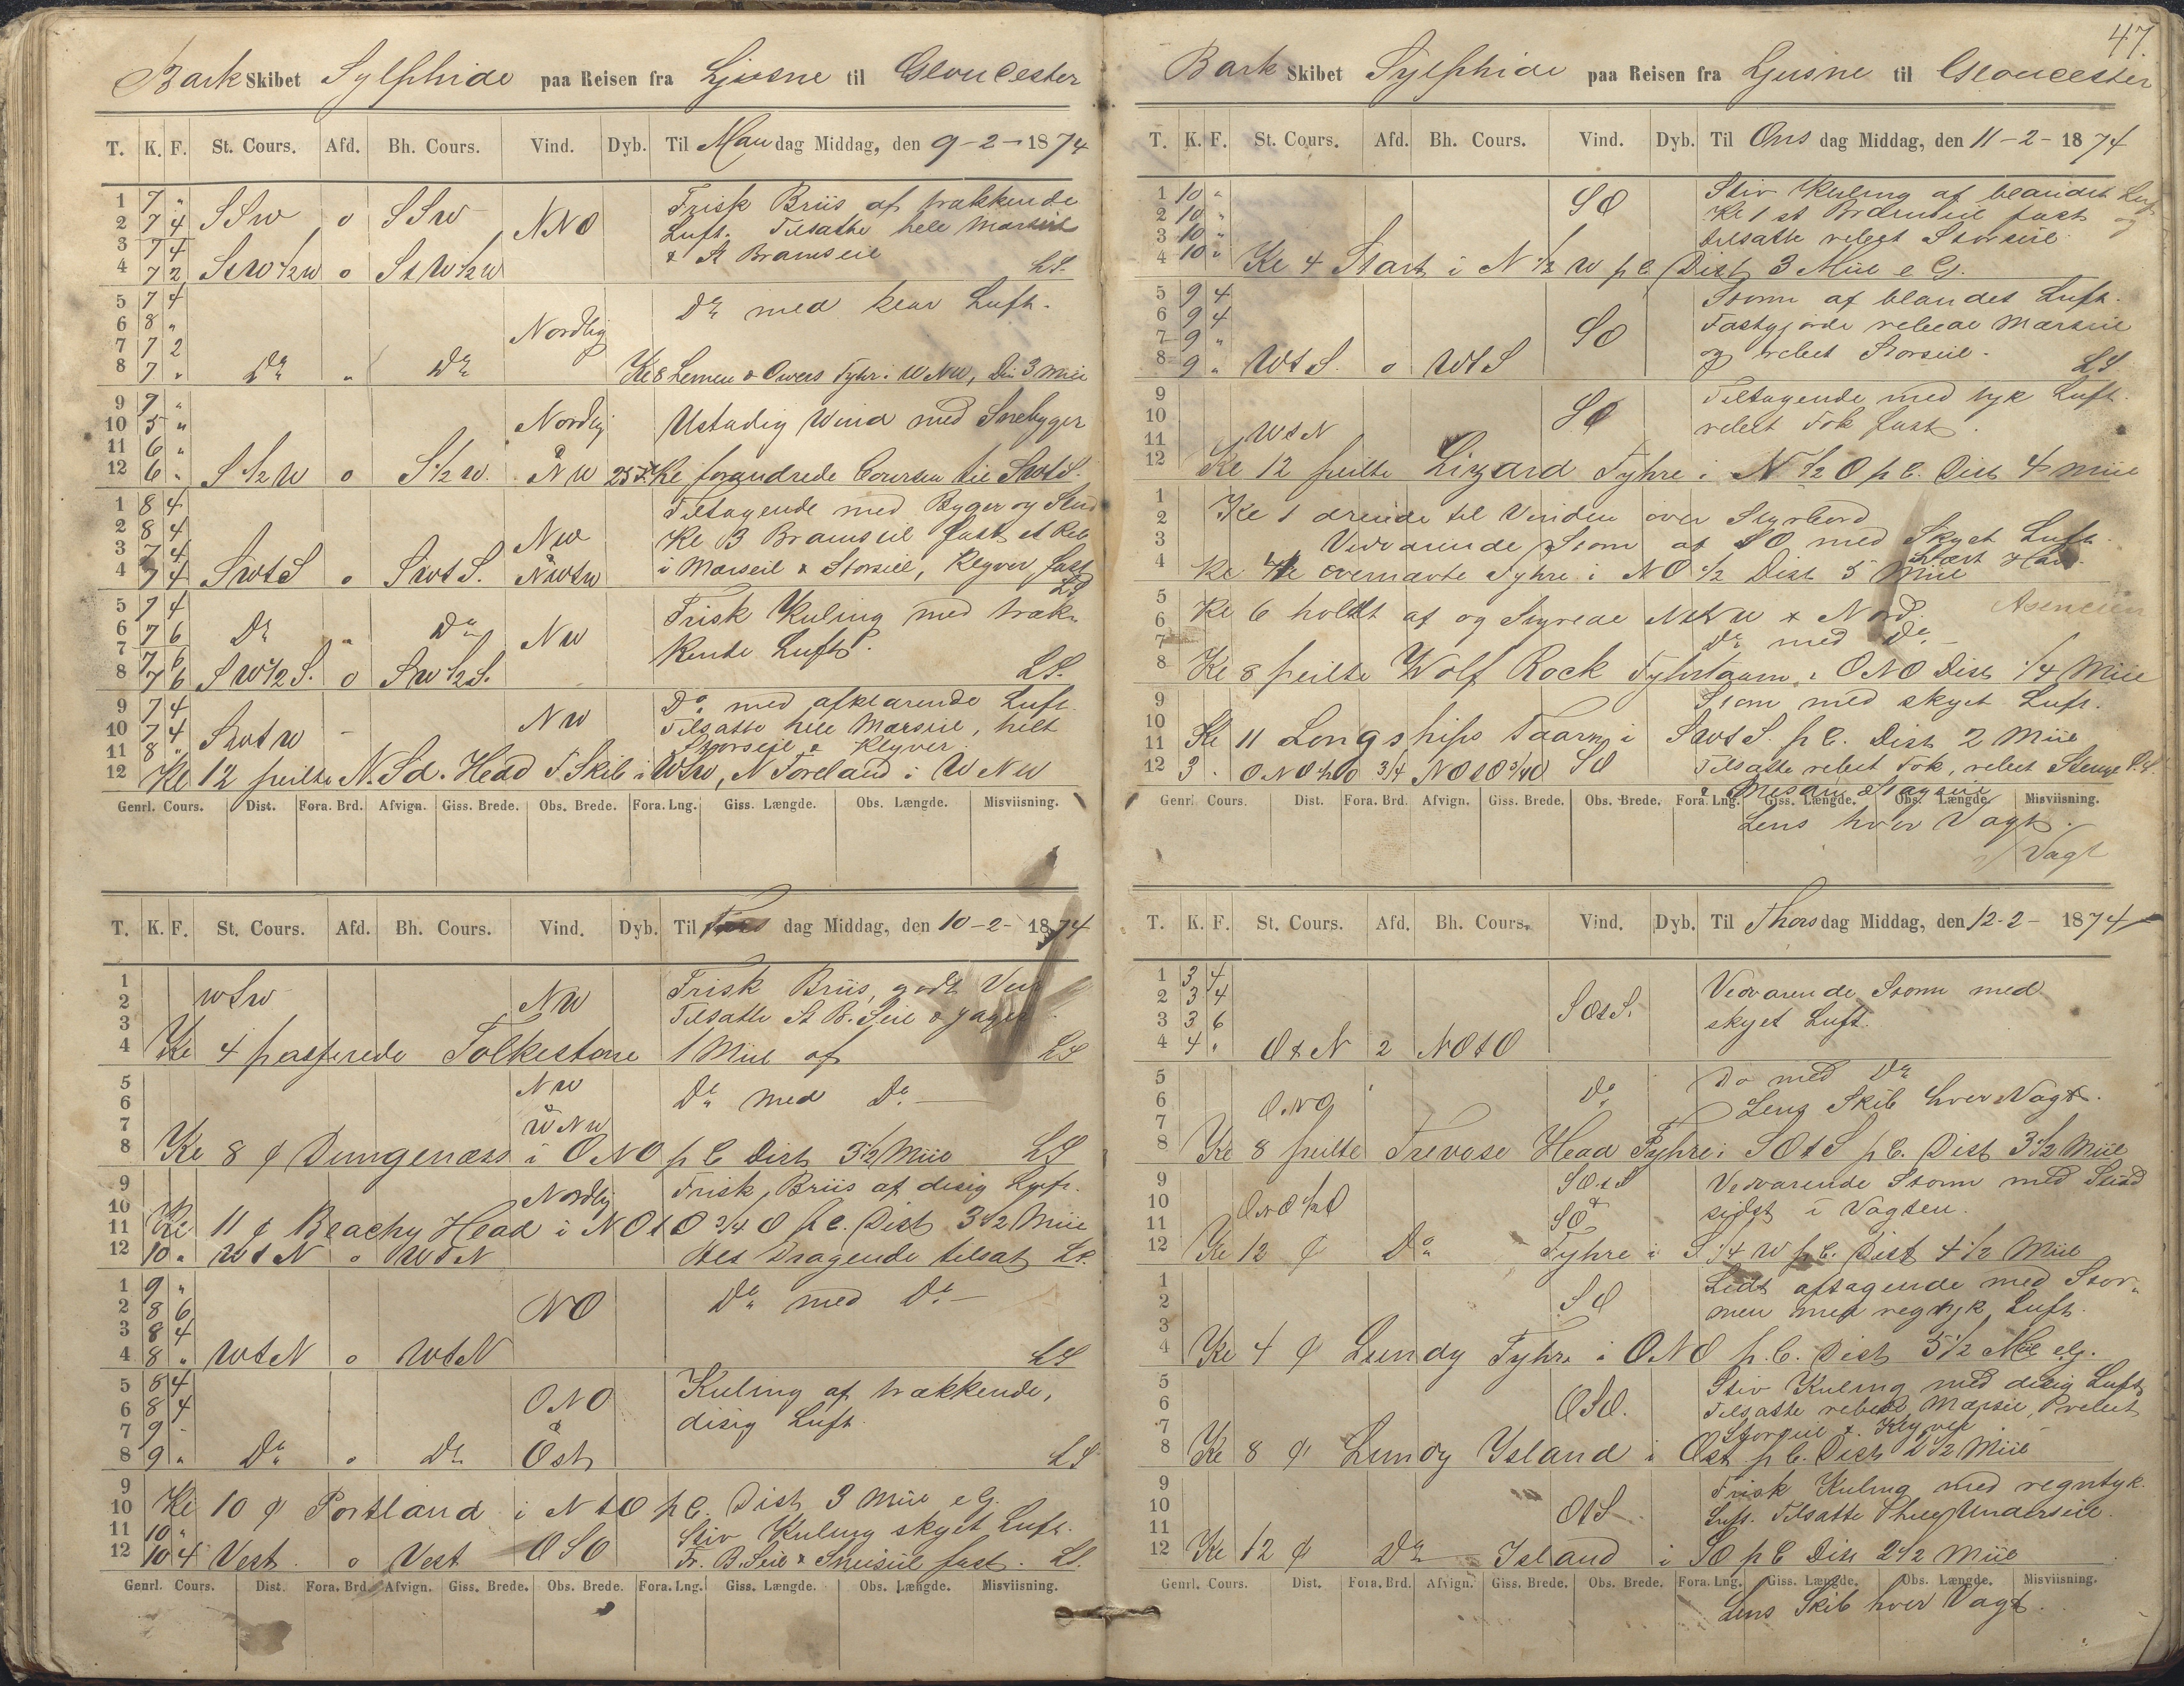 Bark Skibet Sylphide paa Reisen fra Ljusne til Gloucester
T. K. F. St. Cours. Afd. Bh. Cours. Vind. Dyb. Til Mandag Middag, den 9-2-1874
1 7 „ Frisk Briis af trækkende
2 7 4 SSW o SSW NNO Luft. Tilsatte hele Marseil
3 7 4 & St Bramseil
4 7 2 StW½W o StW½W LS.
5 7 4 Do med klar Luft.
6 8 „ Nordlig
7 7 2
8 7 „ Do „ Do Kl 8 Lemen & Owers Fyhr i WNW, Dis 3 Miil
9 7 „
10 5 „ Nordlig Ustadig Wind med Snebyger
11 6 „
12 6 „ S½W o S½W. & NW 25 F. Kl forandrede Coursen til SWtS.
1 8 4 Tiltagende med Byger og Slud
2 8 4 NW Kl 3 Bramseil fast et Reb
3 7 4 i Marseil & Storseil, Klyver fast
4 7 4 SWtS o SWtS. & NWtW LS
5 7 4 Frisk Kuling med træk-
6 7 6 Do „ Do NW kende Luft.
7 7 6
8 7 6 SW½S. o SW½S. LS.
9 7 4 Do med afklarende Luft.
10 7 4 SWtW NW Tilsatte hele Marseil, helt
11 8 „ Storseil & Klyver
12 Kl 12 peilte N. Sd. Head F. Skib i WSW, N Foreland i WNW
Genrl. Cours. Dist. Fora. Brd. Afvign. Giss. Brede. Obs. Brede. Fora. Lng. Giss. Længde. Obs. Længde. Misviisning.
T. K. F. St. Cours. Afd. Bh. Cours. Vind. Dyb. Til Tirsdag Middag, den 10-2-1874
1 Frisk Briis, godt Veir
2 WSW NW Tilsatte St B. Seil & Jager
3
4 Kl 4 passerede Folkestone 1 Miil af LS
5 NW
6 & Do med Do
7 WNW
8 Kl 8 ¢ Dungenæss i ONO p C Dist 3½ Miil LS
9 Nordlig Frisk Briis af disig Luft.
10
11 Kl 11 ¢ Beachy Head i NOtO ¾ O p C. Dist 3½ Miil
12 10 „ WtN o WtN Alt Dragende tilsat LS.
1 9 „ Do med Do
2 8 6 NO
3 8 4
4 8 „ WtN o WtN LS
5 8 4 Kuling af trækkende,
6 8 4 ONO disig Luft
7 9 - &
8 9 „ Do o Do Öst LS
9
10 Kl 10 ¢ Portland i NtO p C. Dist 3 Miil e G.
11 10 „ Stiv Kuling skyet Luft.
12 10 4 Vest. o Vest OSO Fr. B. Seil & Sneiseil fast. LS.
Genrl. Cours. Dist. Fora. Brd. Afvign. Giss. Brede. Obs. Brede. Fora. Lng. Giss. Længde. Obs. Længde. Misviisning.
47.
Bark Skibet Sylphide paa Reisen fra Ljusne til Gloucester
T. K. F. St. Cours. Afd. Bh. Cours. Vind. Dyb. Til Onsdag Middag, den 11-2-1874
1 10 „ Stiv Kuling af blandet Luft
2 10 „ SO Kl 1 st Bramseil fast og
3 10 „ tilsatte rebeet Storseil.
4 10 „ Kl 4 Start i N½W p C Dist 3 Miil e G.
5 9 4 Storm af blandet Luft.
6 9 4 Fastgjorde rebede Marseil
7 9 „ SO og rebeet Storseil.
8 9 „ WtS. o WtS LS
9 Tiltagende med tyk Luft.
10 SO rebeet Fok fast.
11 WtN
12 Kl 12 peilte Lizard Fyhre i N½O p C. Dist 4 Miil
1
2 Kl 1 dreiede til Vinden over Styrbord
3 Vedvarende Storm af SO med Skyet Luft.
4 Kl 4 ovennævte Fyhre i NO½ Dist 5 Miil
5
6 Kl 6 holdt af og Styrede NtW & Nord.
7 Do med Do
8 Kl 8 peilte Wolf Rock Fyhrtaarn i ONO Dist ¼ Miil
9 Storm med skyet Luft.
10
11 Kl 11 Longships Taarn i SWtS. p C. Dist 2 Miil
12 3 „ SO Tilsatte rebeet Fok, rebeet
Mesan Stagseil
Genrl. Cours. Dist. Fora. Brd. Afvign. Giss. Brede. Obs. Brede. Fora. Lng. Giss. Længde. Obs. Længde. Misviisning.
Lens hver Vagt.
Vagt
T. K. F. St. Cours. Afd. Bh. Cours. Vind. Dyb. Til Thorsdag Middag, den 12-2-1874
1 3 4 Vedvarende Storm med
2 3 4 SOtS. skyet Luft.
3 3 6
4 4 „ OtN 2 NOtO
5 Do med Do
6 ONO Do Lens Skib hver Vagt.
7
8 Kl 8 peilte Trevose Head Fyhre i SOtS p C. Dist 3½ Miil
9 SOtS Vedvarende Storm med Slud
10 ONO½O & sidst i Vagten.
11 SO
12 Kl 12 ¢ Do Fyhre i S¼W p C. Dist 4½ Miil
1 Lidt aftagende med Stor-
2 SO men med regntyk Luft.
3
4 Kl 4 ¢ Lundy Fyhre i ONO p. C. Dist 5½ Miil e G.
5 Stiv Kuling med disig Luft
6 OSO. Tilsatte rebede Marseil, rebeet
7 Storseil & Klyver
8 Kl 8 ¢ Lundy Ysland i Øst p C. Dist 2½ Miil
9 Frisk Kuling med regntyk.
10 OtS Luft. Tilsatte Underseil.
11
12 Kl 12 ¢ Do Island i SO p C Dist 2½ Miil
Genrl. Cours. Dist. Fora. Brd. Afvign. Giss. Brede. Obs. Brede. Fora. Lng. Giss. Længde. Obs. Længde. Misviisning.
Lens Skib hver Vagt.